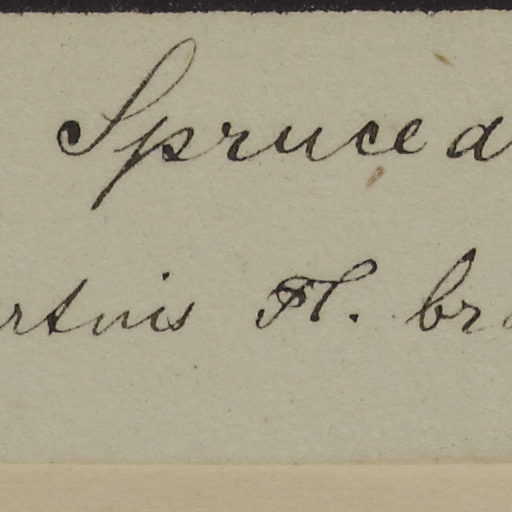 Spruce a
rtius Fl. br